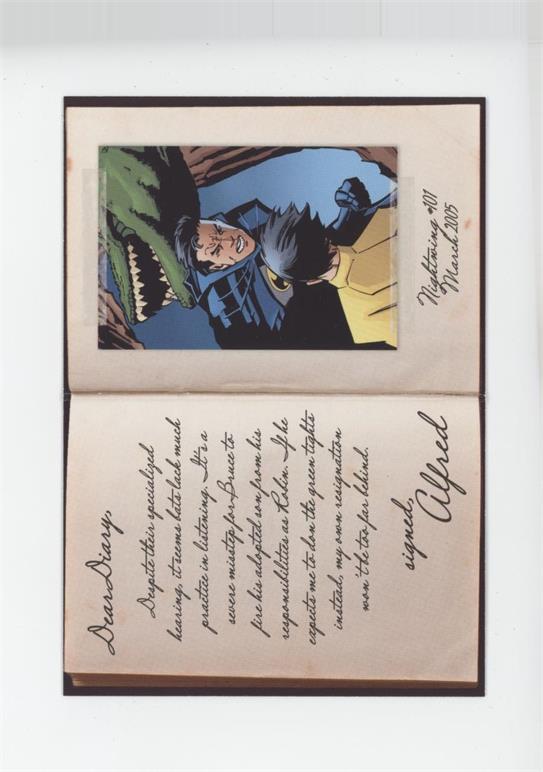 Dear Diary,
Despite their specialized
hearing, it seems bats lack much
practice in listening. It's a
severe misstep for Bruce to
fire his adopted son from his
responsibilities as Robin. If he
expects me to don the green tights
instead, my own resignation
won't be too far behind.
signed,
Alfred
Nightwing #101
March 2005